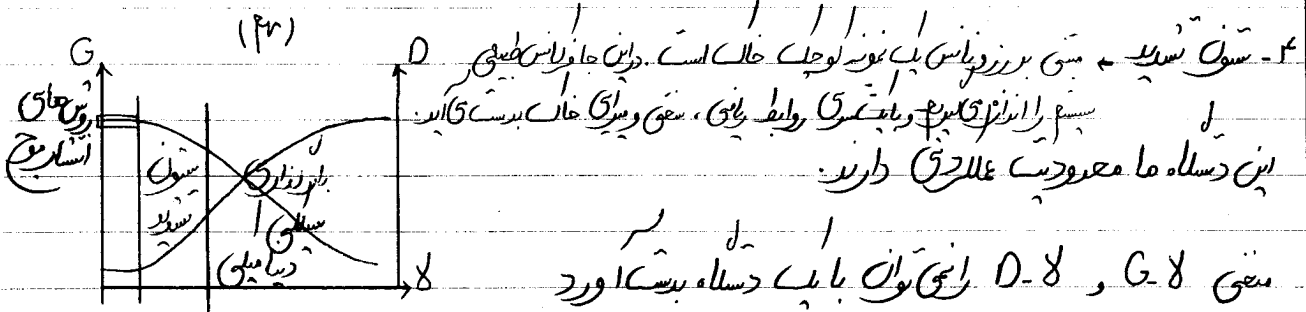 (۴۲)
۴- ستون تشدید → مبتنی بر رزونانس یک نمونه کوچک خاک است. در این جا فرکانس طبیعی
سیستم را اندازه می‌گیریم و با یک سری روابط ریاضی، سختی و میرایی خاک بدست می‌آید.
این دستگاه ها محدودیت عملکردی دارند.
منحنی G-γ و D-γ را نمی توان با یک دستگاه بدست آورد
G
D
γ
روش های
انتشار موج
ستون
تشدید
بارگذاری
سیکلی
دینامیکی